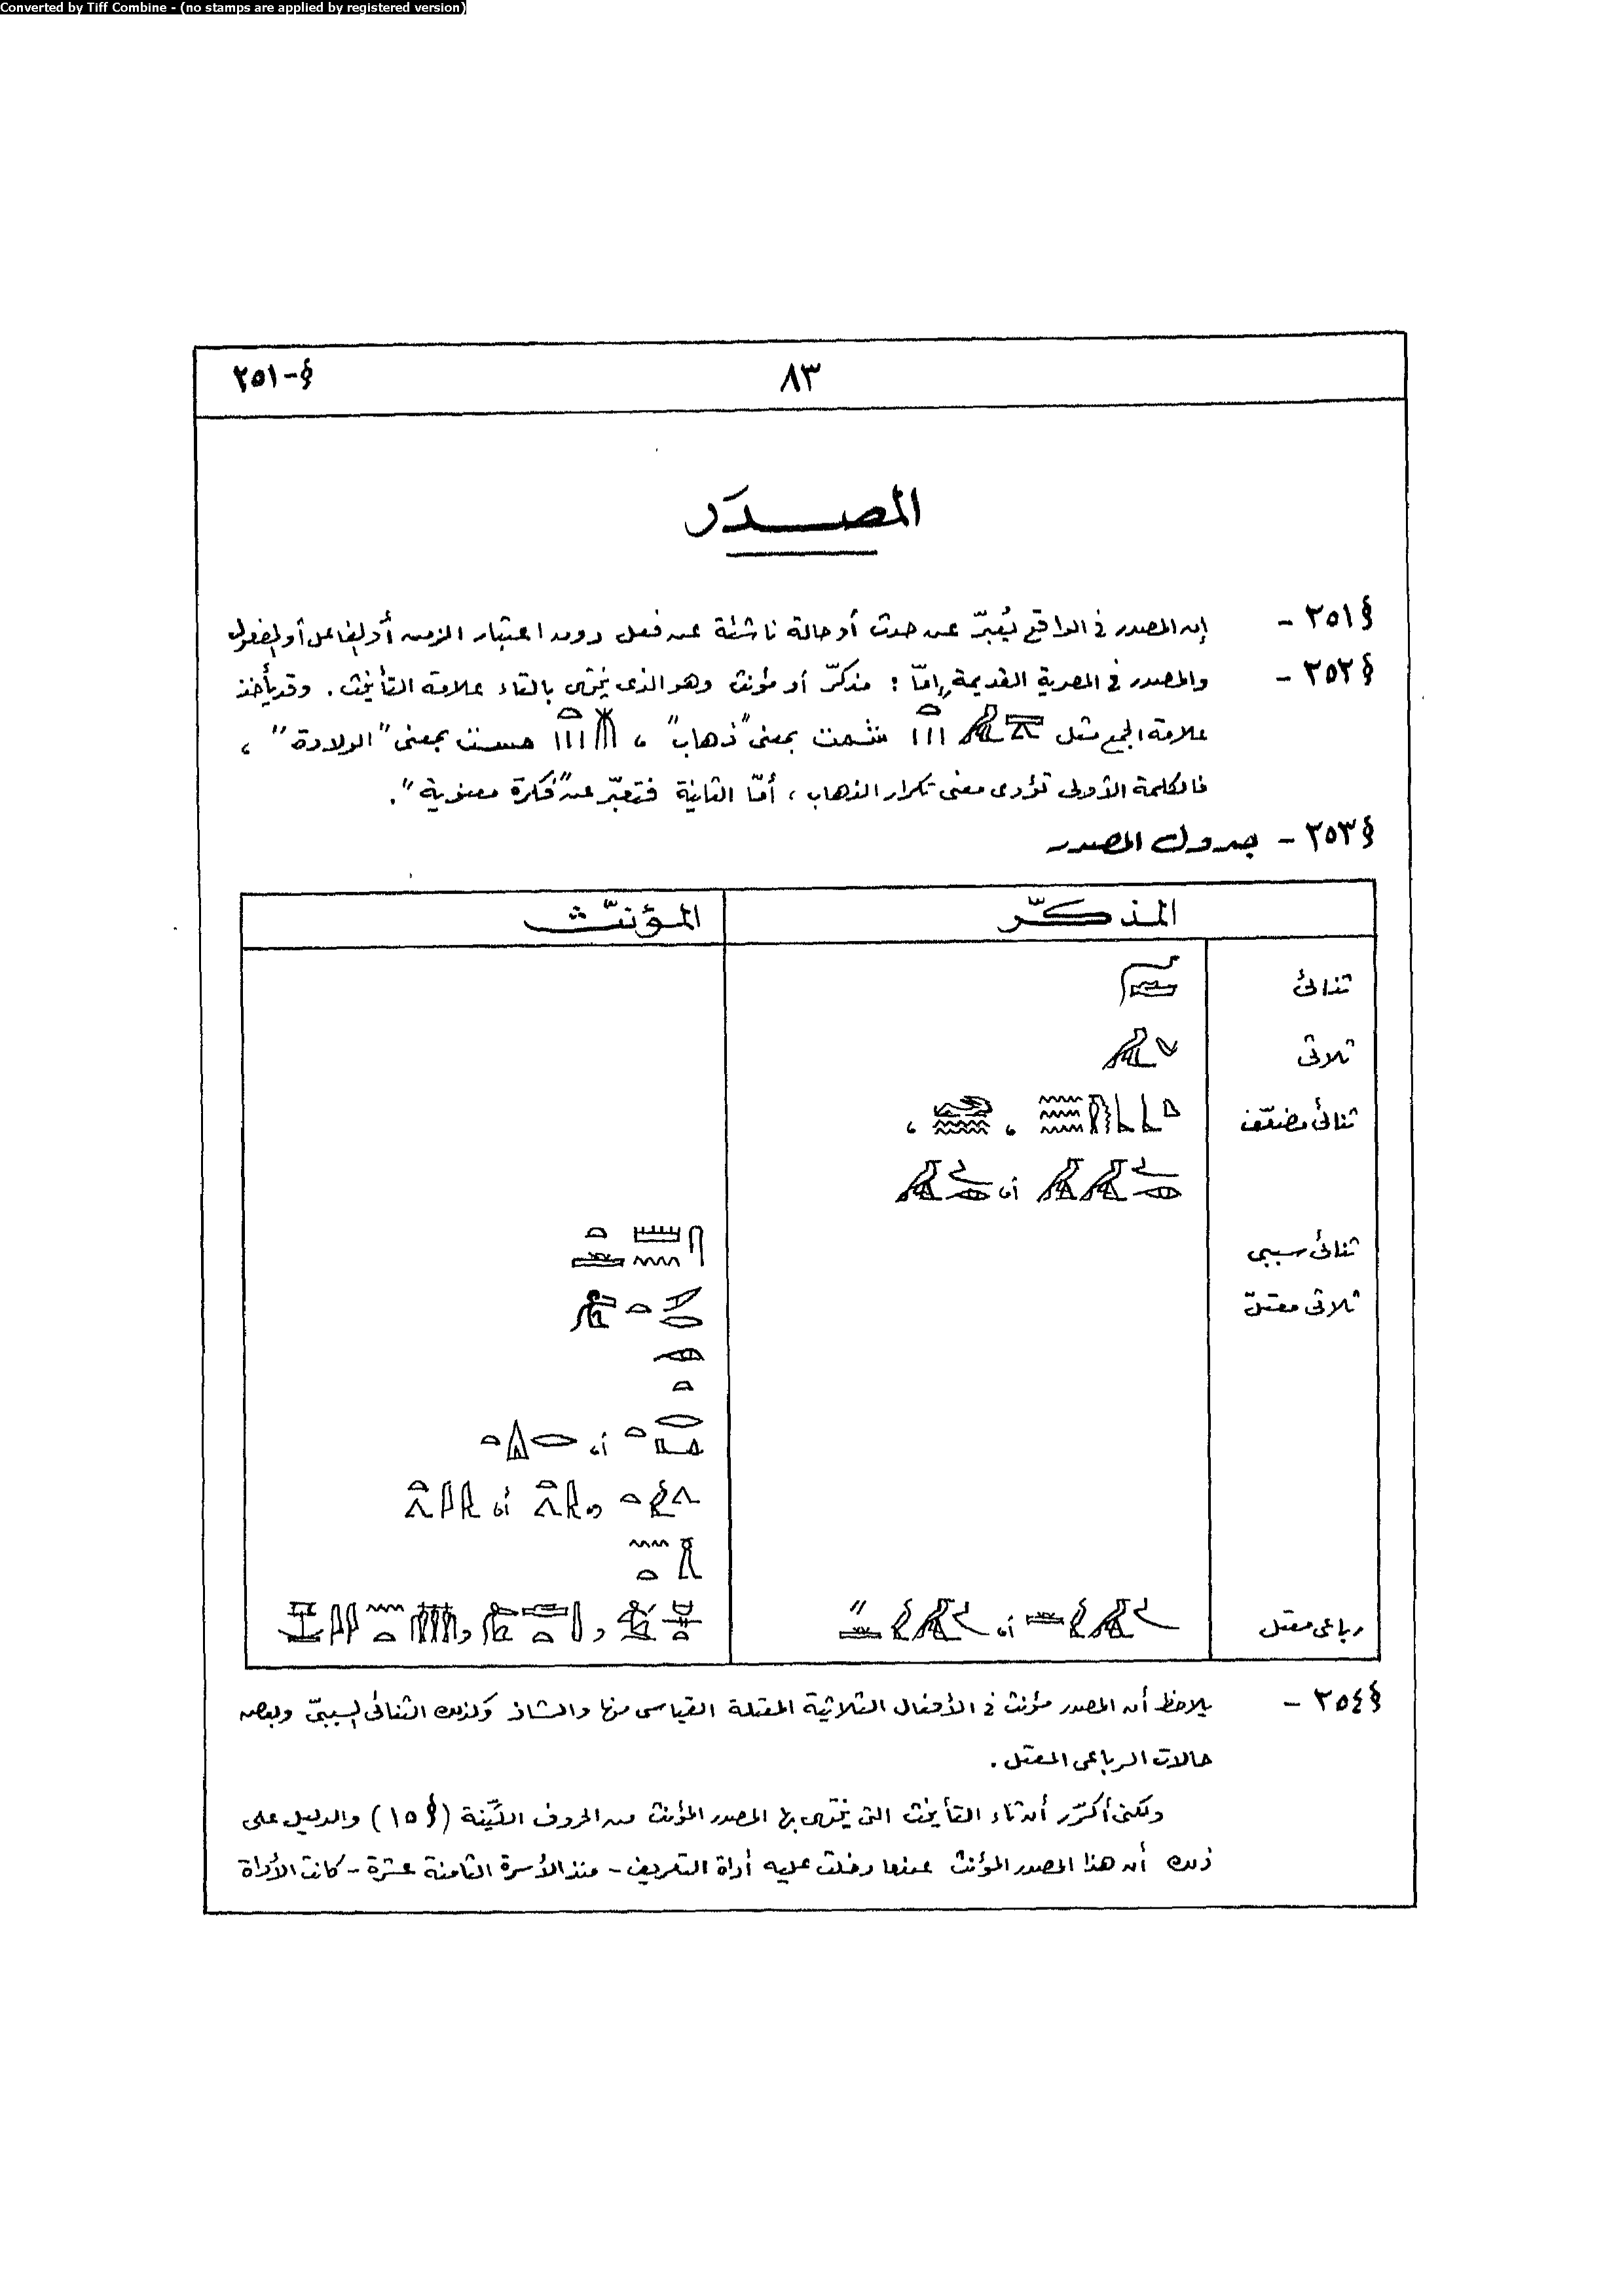 Converted by Tiff Combine - (no stamps are applied by registered version)
§-٢٥١
٨٣
المصدر
§٢٥١- إن المصدر فى الواقع يُعبّر عن حدث أو حالة ناشئة عن فعل دون اعتبار الزمن أو الفاعل أو المفعول
§٢٥٢- والمصدر فى المصرية القديمة إمّا : مذكّر أو مؤنث وهو الذى ينتهى بالتاء علامة التأنيث . وقد يأخذ
علامة الجمع مثل شمت بمعنى "ذهاب" ، مست بمعنى "الولادة" ،
فالكلمة الأولى تؤدى معنى تكرار الذهاب ، أمّا الثانية فتعبّر عن "فكرة معنوية" .
§٢٥٣- جدول المصدر
المذكّر المؤنّث
ثنائى
ثلاثى
ثنائى مضعّف ، ،
أو
ثنائى سببى
ثلاثى معتلّ
أو
و أو
رباعى معتل أو , ,
§٢٥٤- يلاحظ أن المصدر مؤنث فى الأفعال الثلاثية المعتلة القياسى منها والشاذ وكذلك الثنائى السببىّ وبعض
حالات الرباعى المعتل .
ولكنى أكرّر أن تاء التأنيث التى ينتهى بها المصدر المؤنث من الحروف الليّنة (§١٥) والدليل على
ذلك أن هذا المصدر المؤنث عندما دخلت عليه أداة التعريف - منذ الأسرة الثامنة عشرة - كانت الأداة